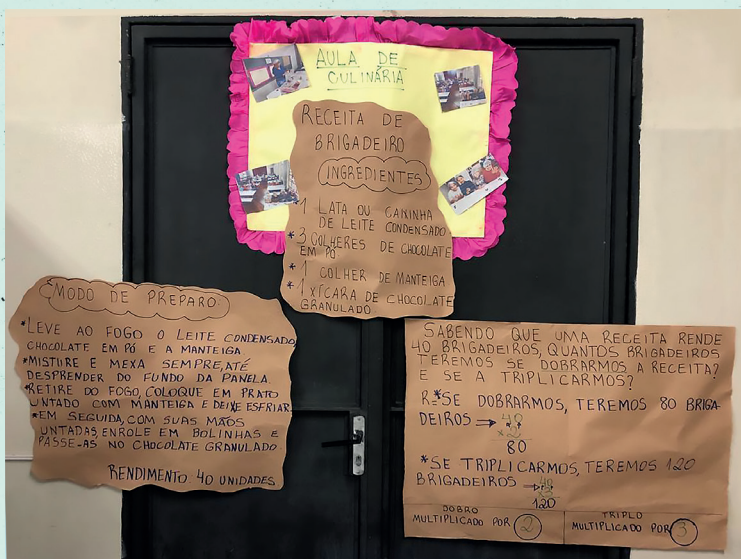 AULA DE
CULINÁRIA
RECEITA DE
BRIGADEIRO
INGREDIENTES
* 1 LATA OU CAIXINHA
DE LEITE CONDENSADO
* 3 COLHERES DE CHOCOLATE
EM PÓ
* 1 COLHER DE MANTEIGA
* 1 XÍCARA DE CHOCOLATE
GRANULADO
MODO DE PREPARO
*LEVE AO FOGO O LEITE CONDENSADO,
CHOCOLATE EM PÓ E A MANTEIGA.
*MISTURE E MEXA SEMPRE, ATÉ
DESPRENDER DO FUNDO DA PANELA.
*RETIRE DO FOGO, COLOQUE EM PRATO
UNTADO COM MANTEIGA E DEIXE ESFRIAR.
*EM SEGUIDA, COM SUAS MÃOS
UNTADAS, ENROLE EM BOLINHAS E
PASSE-AS NO CHOCOLATE GRANULADO.
RENDIMENTO: 40 UNIDADES
SABENDO QUE UMA RECEITA RENDE
40 BRIGADEIROS, QUANTOS BRIGADEIROS
TEREMOS SE DOBRARMOS A RECEITA?
E SE A TRIPLICARMOS?
R: *SE DOBRARMOS, TEREMOS 80 BRIGA-
DEIROS → 40
x2
80
*SE TRIPLICARMOS, TEREMOS 120
BRIGADEIROS → 40
x3
120
DOBRO
MULTIPLICADO POR 2
TRIPLO
MULTIPLICADO POR 3